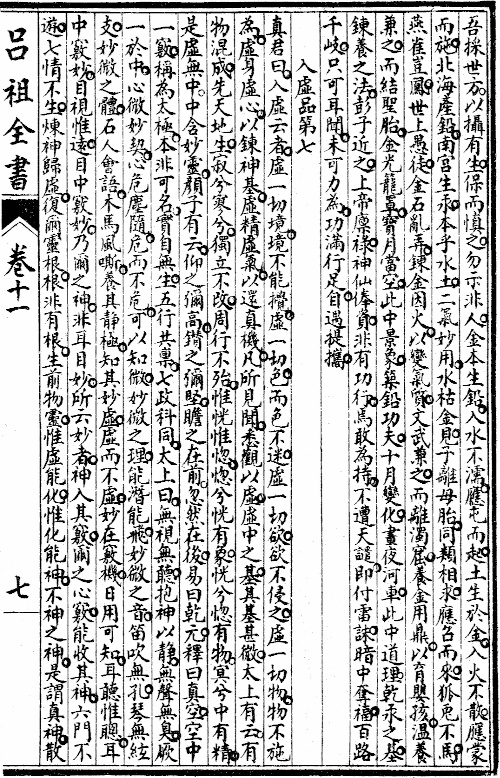 吾採世方以攝有生保而慎之勿示非人金本生鉛入水不濡應屯而起土生於金入火不散應蒙
而施北海產鉛南宮生汞本乎水土二氣妙用水枯金見子離母胎同類相求應召而來狐兔不馬
燕雀豈鳳世上愚徒金石亂弄鍊金因火以變氣質文武兼之而離濁窟養金用鼎以育嬰孩溫養
兼之而結聖胎金光籠罩寶月當空此中景象藥鉛功夫十月變化晝夜河車此中道理乾汞之基
鍊養之法彭子近之上帝禀祿神仙俸賞非有功行焉敢為持不遭天譴即付雷誅暗中奪禧百路
千岐只可耳聞未可力為功滿行足自遇提攜
入虛品第七
真君曰入虛云者虛一切境境不能擋虛一切色而色不迷虛一切欲欲不侵之虛一切物物不施
為虛身虛心以鍊神基虛精虛氣以還真機凡所見聞悉觀以虛虛中之基其基甚微太上有云有
物混成先天地生寂兮寥兮獨立不改周行不殆惟恍惟惚惚兮恍有象恍兮惚有物窅兮中有精
是虛無中中含妙靈顏子有云仰之彌高鑽之彌堅瞻之在前忽然在後易曰乾元釋曰真空空中
一竅稱為太極本非可名實自無生五行共稟七政科同太上曰無視無聽抱神以靜無聲無臭厥
一於中心微妙契心危塵隨危而不危可以知微妙微之理能潛能飛妙微之音笛吹無孔琴無絃
支妙微之體石人會語木馬風嘶養其靜極知其妙虛虛而不虛妙在竅機日用可知耳聽惟聰耳
中竅妙目視惟遠目中竅妙乃爾之神非耳目妙所云妙者神入其竅爾之心竅能收其神六門不
遊七情不生煉神歸虛復爾靈根根非有根生前物靈惟虛能化惟化能神不神之神是謂真神散
呂祖全書
卷十一
七